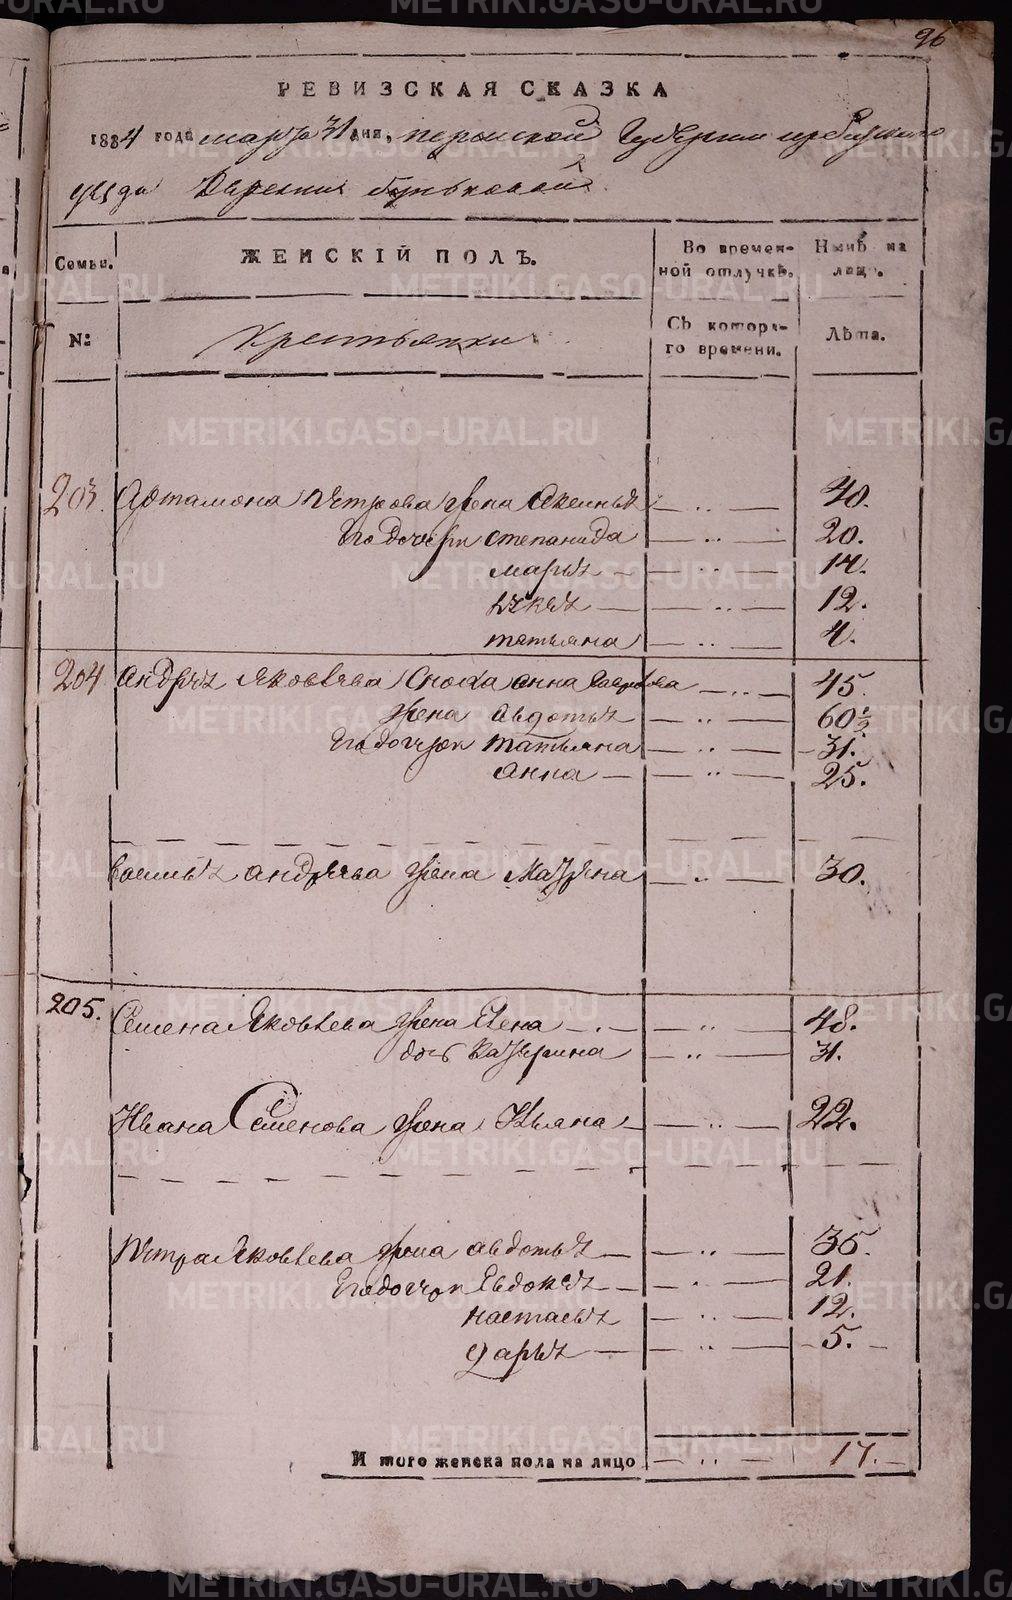 96
РЕВИЗСКАЯ СКАЗКА
1834 года марта 31 дня, пермской Губернии ирбитского
уезда Деревни буньковой
Семьи. ЖЕНСКІЙ ПОЛЪ. Во времен- Нынѣ на
ной отлучкѣ. лицо.
№ Крестьянки Съ которо- Лѣта.
го времени.
203. Артамона Петрова жена Аксинья — 40.
Его дочери степанида — 20.
марья — 14.
— 12.
татьяна — 4.
204 Андрея Яковлева сноха анна — 45.
жена авдотья — 60½
Его дочери татьяна — 31.
анна — 25.
василья андреева жена — 30.
205. Семена Яковлева жена Елена — 48.
дочь Катерина — 31.
Ивана Семенова жена Ульяна — 22.
Петра Яковлева жена авдотья — 36.
Его дочери Евдокея — 21.
настасья — 12.
дарья — 5.
И того женска пола на лицо — 17.
METRIKI.GASO-URAL.RU